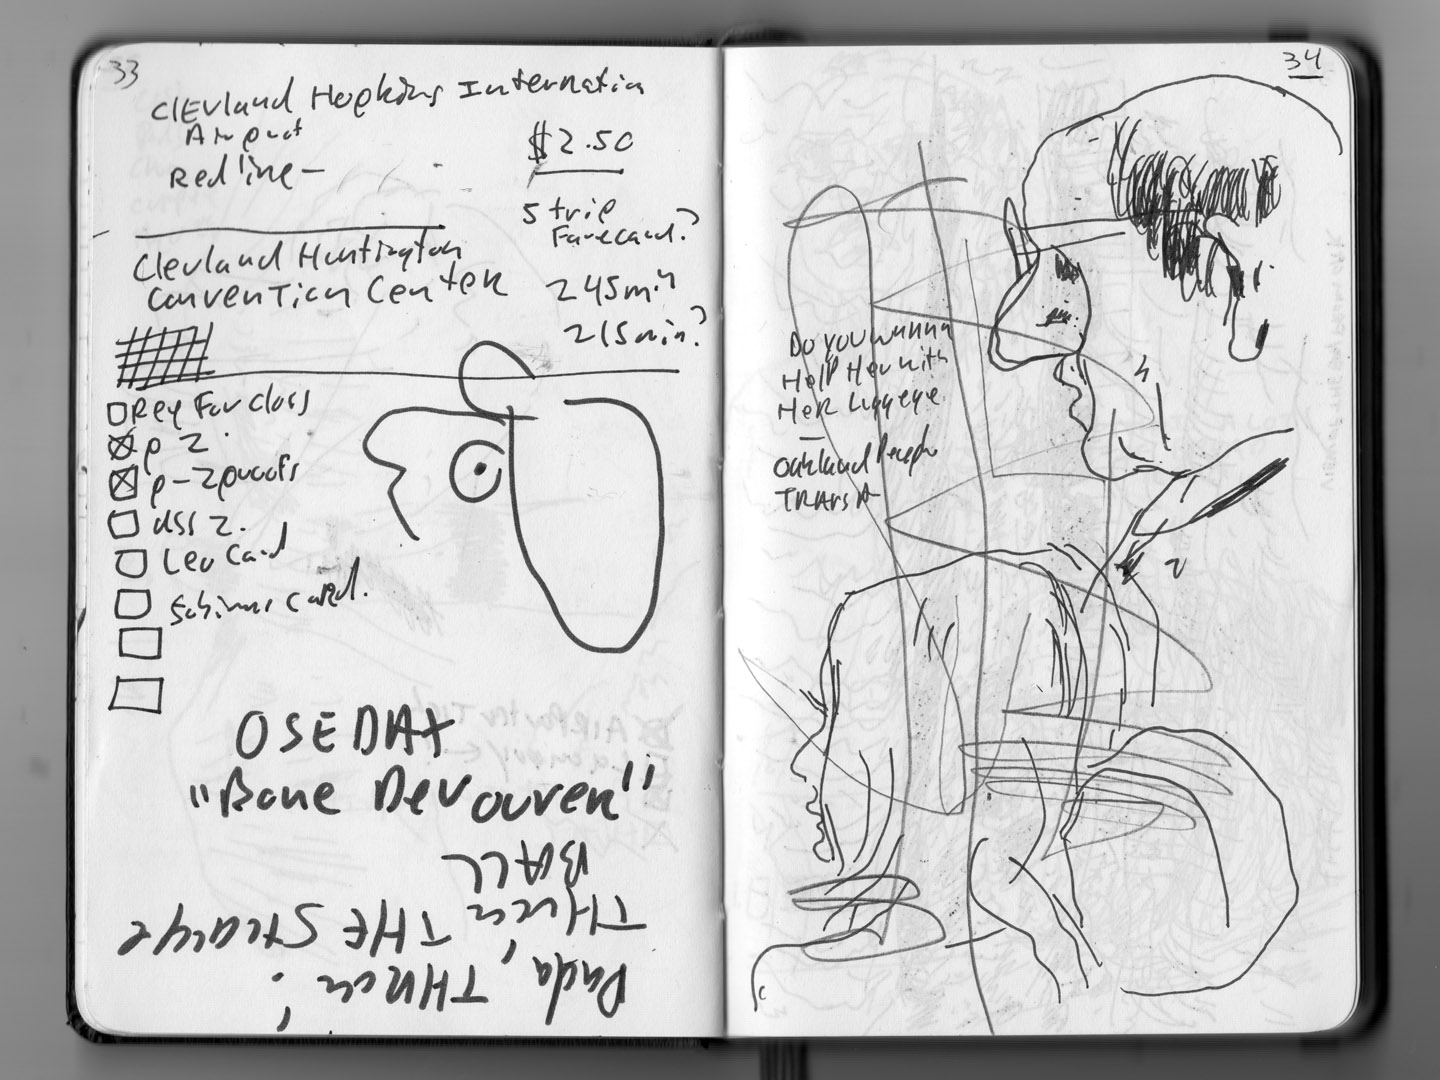 33
Clevland Hopkins Internatin
Airport
Red line -
$2.50
5 trip
Farecard?
Clevland Huntington
Convention Center
245 min
215 min?
Req For class
p 2.
p-2 proofs
dss 2.
Lev Card
Card.
OSEDAX
"Bone Devourer"
Dada, THROW
THROW THE Strange
BALL
34
Do you wanna
Help Her with
Her Luggege
Oakland People
TRANSA